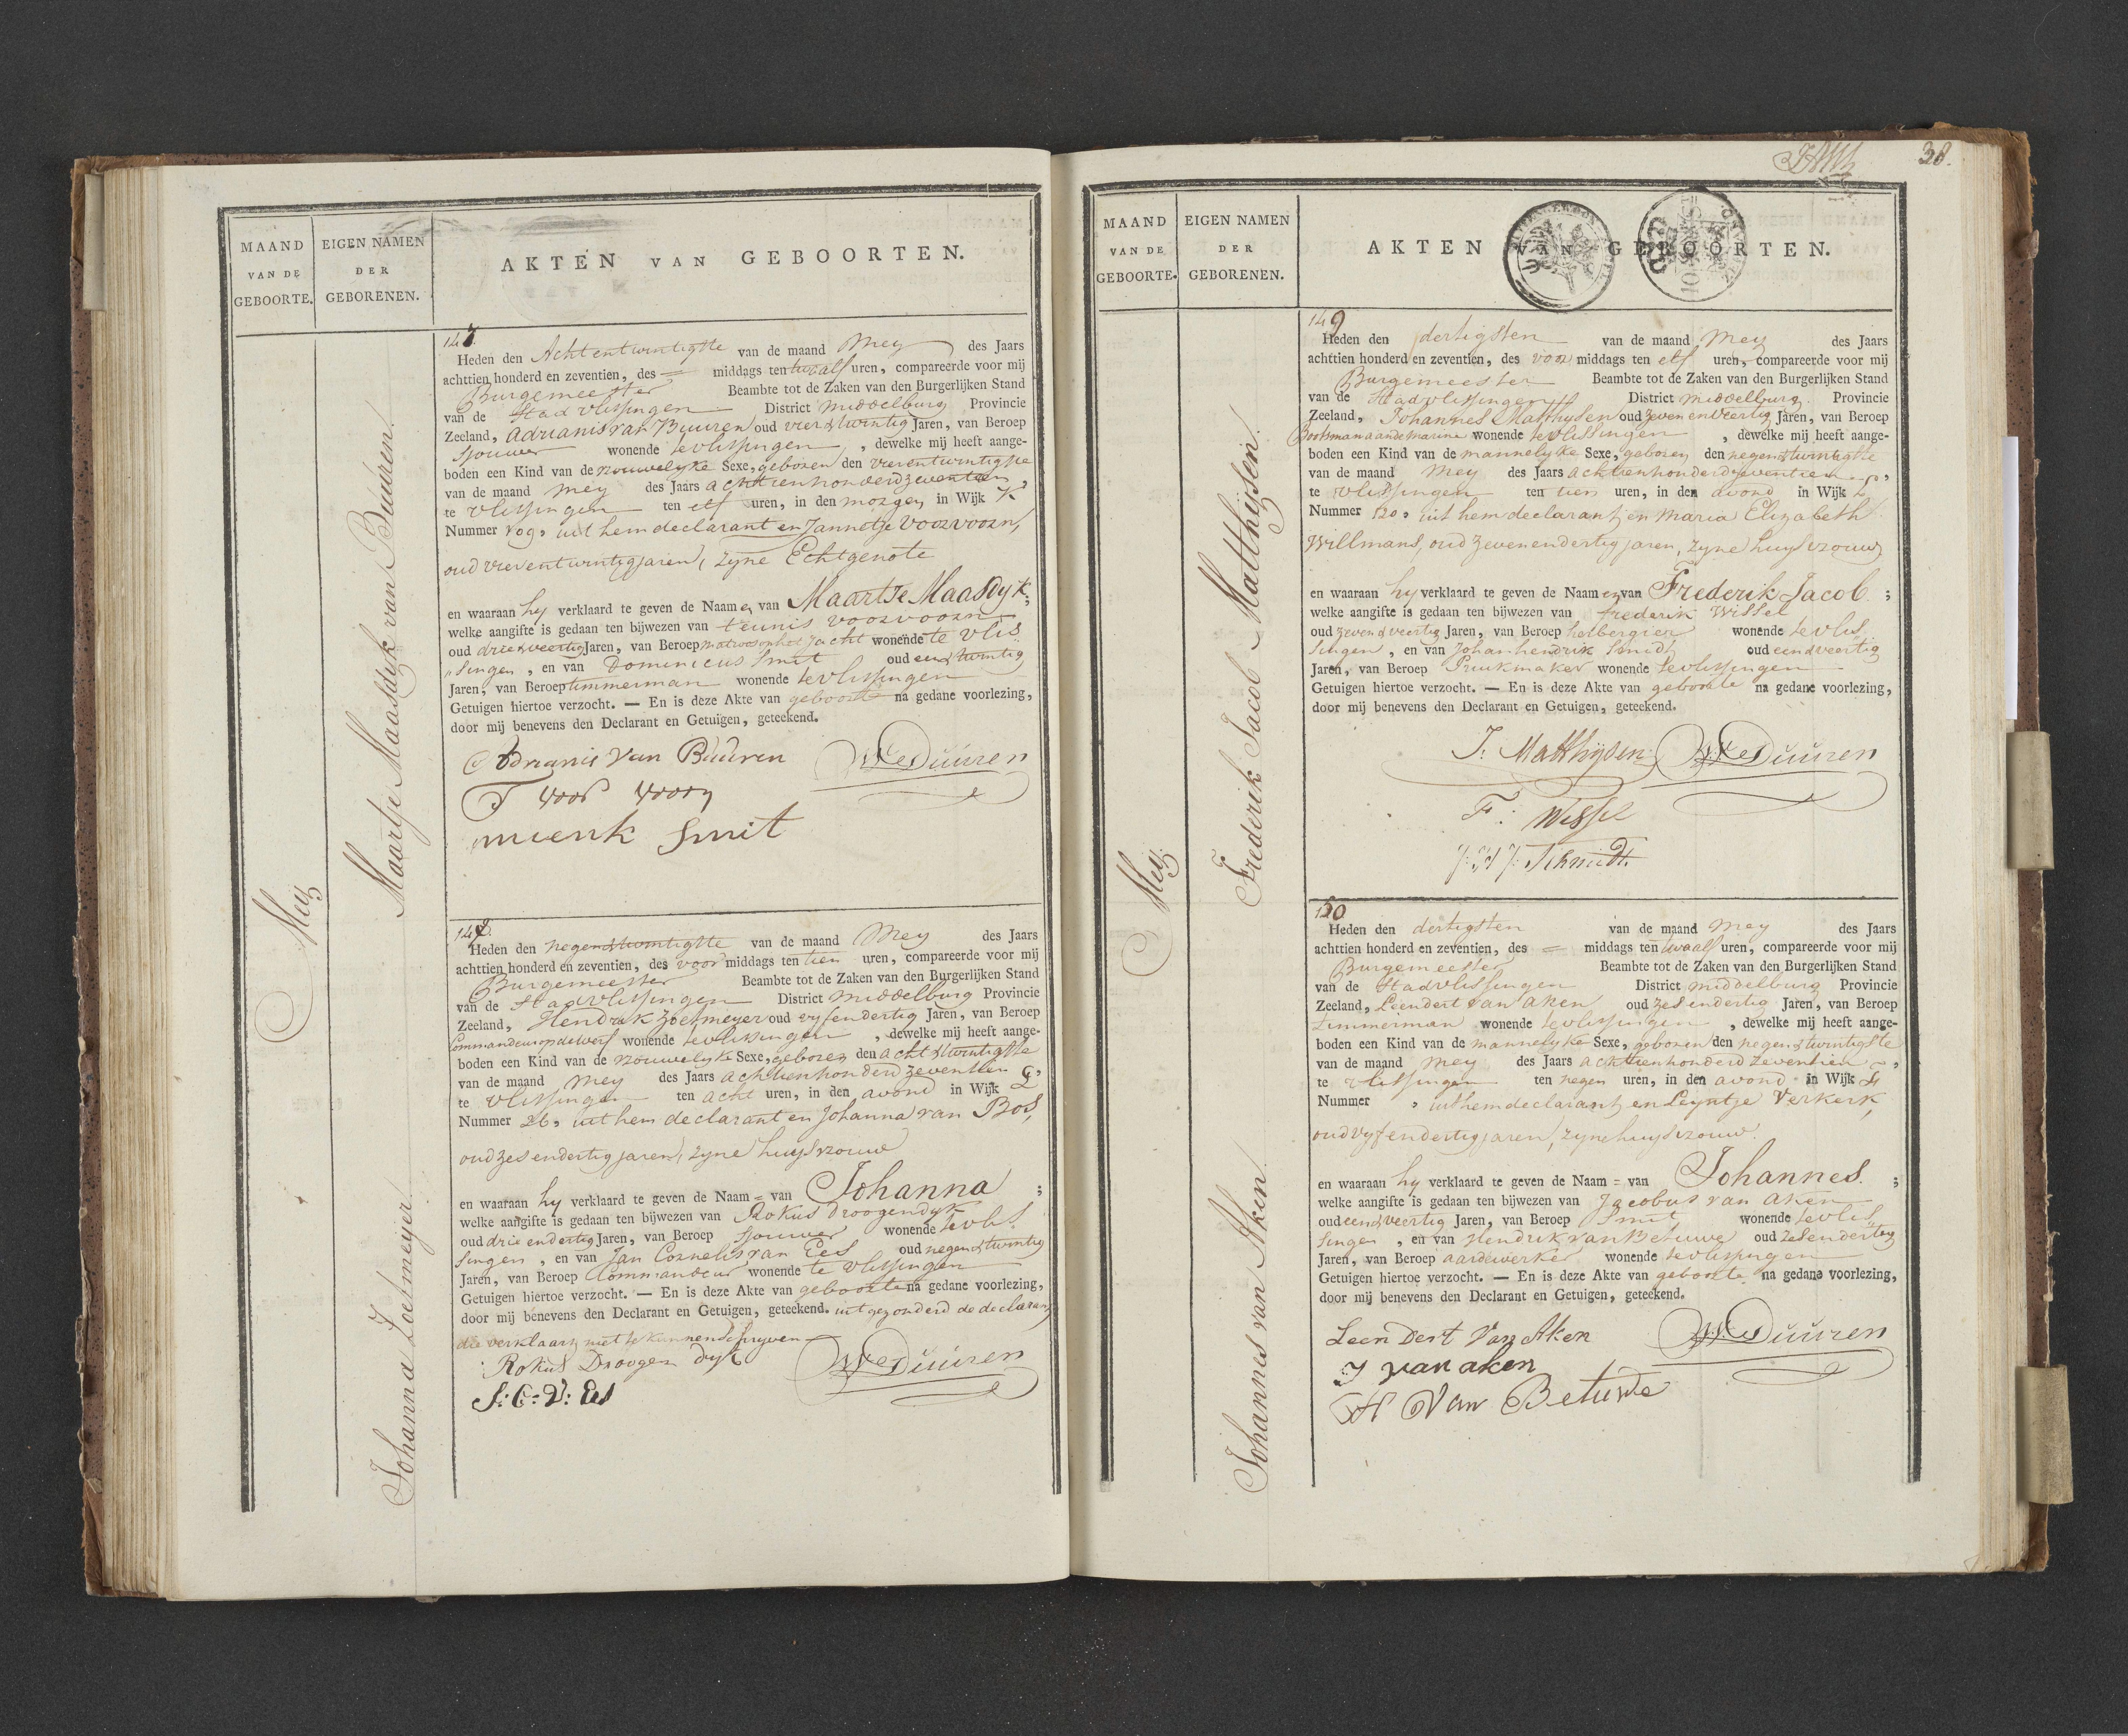 MAAND
VAN DE
GEBOORTE.
EIGEN NAMEN
DER
GEBORENEN.
AKTEN VAN GEBOORTEN.
Mey
Maartje Maasdijk van Buuren.
Johanna Zoetmeyer.
147.
Heden den Achtentwintigste van de maand Mey des Jaars
achttien honderd en zeventien, des = middags ten twaalf uren, compareerde voor mij
Burgemeester Beambte tot de Zaken van den Burgerlijken Stand
van de Stad Vlissingen District Middelburg Provincie
Zeeland, Adrianis van Buuren oud vier & twintig Jaren, van Beroep
sjouwer wonende te Vlissingen, dewelke mij heeft aange-
boden een Kind van de vrouwelyke Sexe, geboren den vierentwintigste
van de maand Mey des Jaars achttienhonderd zeventien,
te Vlissingen ten elf uren, in den morgen, in Wijk K
Nummer 109, uit hem declarant en Jannetje Voorvoorn,
oud vierentwintig jaren, zyne Echtgenote
en waaraan hy verklaard te geven de Naamen van Maartje Maasdyk;
welke aangifte is gedaan ten bijwezen van teunis voorvoorn
oud drie & veertig Jaren, van Beroep matroos op het Jacht wonende te Vlis
„singen, en van Dominicus Smit oud een & twintig
Jaren, van Beroep timmerman wonende te Vlissingen
Getuigen hiertoe verzocht. — En is deze Akte van geboorte na gedane voorlezing,
door mij benevens den Declarant en Getuigen, geteekend.
Adrianis Van Buuren
T voor voorn
mienk Smit
148.
Heden den negen & twintigste van de maand Mey des Jaars
achttien honderd en zeventien, des voor middags ten tien uren, compareerde voor mij
Burgemeester Beambte tot de Zaken van den Burgerlijken Stand
van de Stad Vlissingen District Middelburg Provincie
Zeeland, Hendrik Zoetmeyer oud vyfendertig Jaren, van Beroep
Commandeur op de werf wonende te Vlissingen, dewelke mij heeft aange-
boden een Kind van de vrouwelyke Sexe, geboren den acht & twintigste
van de maand Mey des Jaars achttienhonderd zeventien,
te Vlissingen ten acht uren, in den avond in Wijk L
Nummer 26, uit hem declarant en Johanna van Bos,
oud zes endertig jaren, zyne huysvrouw
en waaraan hy verklaard te geven de Naam = van Johanna;
welke aangifte is gedaan ten bijwezen van Rokus Droogendyk
oud drie endertig Jaren, van Beroep sjouwer wonende te Vlis
singen, en van Jan Cornelis van Ees oud negen & twintig
Jaren, van Beroep Commandeur wonende te Vlissingen
Getuigen hiertoe verzocht. — En is deze Akte van geboorte na gedane voorlezing,
door mij benevens den Declarant en Getuigen, geteekend. uitgezonderd de declarant
die verklaart niet te kunnen schryven
Rokus Droogen dyk
J: C: V: Ees
38.
MAAND
VAN DE
GEBOORTE.
EIGEN NAMEN
DER
GEBORENEN.
AKTEN VAN GEBOORTEN.
Mey
Frederik Jacob Matthijsen.
Johannes van Aken.
149
Heden den dertigsten van de maand Mey des Jaars
achttien honderd en zeventien, des voor middags ten elf uren, compareerde voor mij
Burgemeester Beambte tot de Zaken van den Burgerlijken Stand
van de Stad Vlissingen District Middelburg. Provincie
Zeeland, Johannes Matthysen oud zeven en Veertig Jaren, van Beroep
Bootsman aan de marine wonende te Vlissingen, dewelke mij heeft aange-
boden een Kind van de mannelyke Sexe, geboren den negen & twintigste
van de maand Mey des Jaars achttienhonderd zeventien,
te Vlissingen ten tien uren, in den avond in Wijk L
Nummer 120, uit hem declarant en Maria Elizabeth
Willmans, oud zevenendertig jaren, zyne huysvrouw
en waaraan hy verklaard te geven de Naamen van Frederik Jacob;
welke aangifte is gedaan ten bijwezen van Frederik Wissel
oud zeven & veertig Jaren, van Beroep herbergier wonende te Vlis„
singen, en van Johan hendrik Smidt oud een & veertig
Jaren, van Beroep Pruikmaker wonende te Vlissingen
Getuigen hiertoe verzocht. — En is deze Akte van geboorte na gedane voorlezing,
door mij benevens den Declarant en Getuigen, geteekend.
J. Matthijsen
F: Wissel
150
Heden den dertigsten van de maand Mey des Jaars
achttien honderd en zeventien, des = middags ten twaalf uren, compareerde voor mij
Burgemeester Beambte tot de Zaken van den Burgerlijken Stand
van de Stad Vlissingen District Middelburg Provincie
Zeeland, Leendert van Aken oud zes endertig Jaren, van Beroep
timmerman wonende te Vlissingen, dewelke mij heeft aange-
boden een Kind van de mannelyke Sexe, geboren den negen & twintigste
van de maand Mey des Jaars achttienhonderd zeventien,
te Vlissingen ten negen uren, in den avond in Wijk
Nummer , uit hem declarant en Leyntje Verkerk,
oud vyf endertig jaren, zyne huysvrouw.
en waaraan hy verklaard te geven de Naam = van Johannes.;
welke aangifte is gedaan ten bijwezen van Jacobus van Aken
oud een & veertig Jaren, van Beroep Smit wonende te Vlis„
singen, en van Hendrik van Betuwe oud zes endertig
Jaren, van Beroep aardewerker wonende te Vlissingen
Getuigen hiertoe verzocht. — En is deze Akte van geboorte na gedane voorlezing,
door mij benevens den Declarant en Getuigen, geteekend.
Leen Dert Van Aken
J van aken
H Van Betuwe